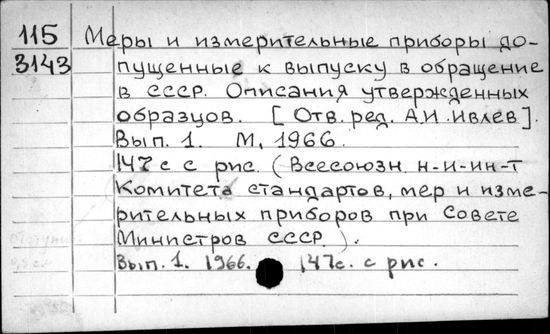 115 Меры и измерительные приборы до-
3143 пущенные к выпуску в обращение
в СССР. Описания утвержденных
образцов. [Отв. ред. А.И. Ивлев].
Вып. 1. М, 1966.
147 с с рис. (Всесоюзн. н-и-ин-т
Комитета стандартов, мер и изме-
рительных приборов при Совете
Министров СССР).
Вып. 1. 1966. 147с. с рис.